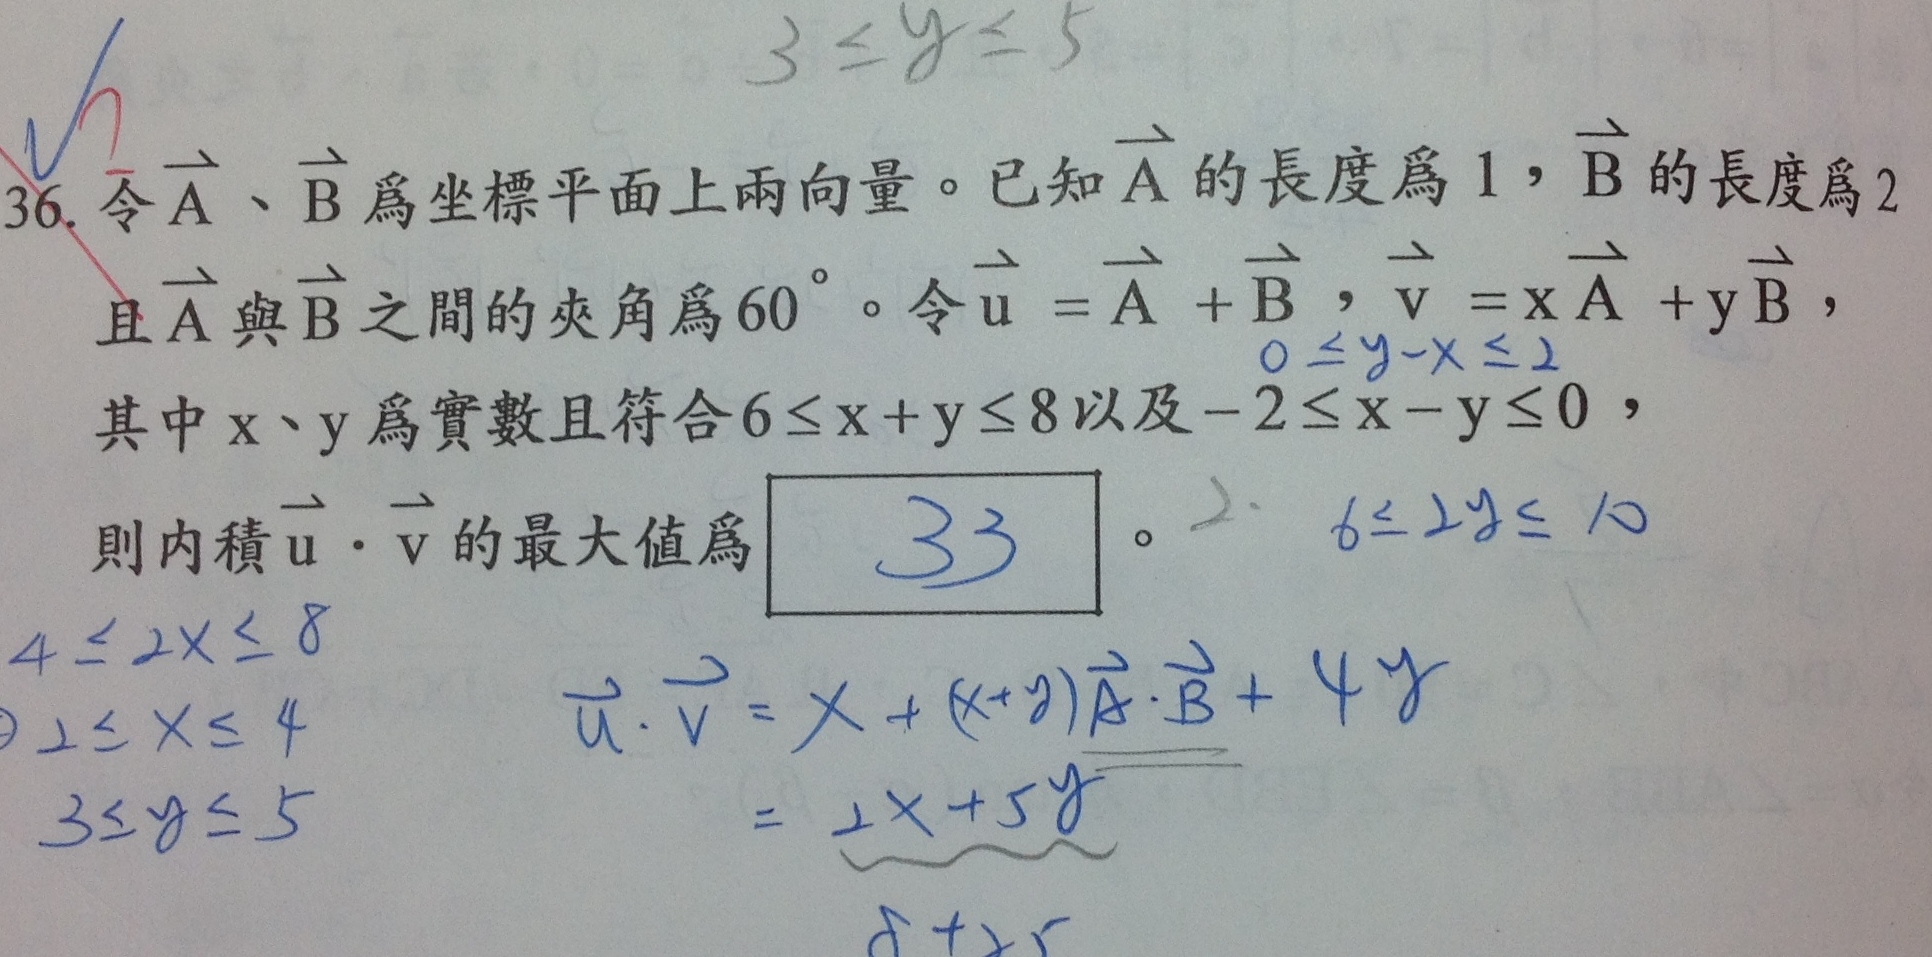 3 ≤ y ≤ 5
36. 令 A、B 爲坐標平面上兩向量。已知 A 的長度爲 1，B 的長度爲2
且 A 與 B 之間的夾角爲 60°。令 u = A + B，v = x A + y B，
0 ≤ y - x ≤ 2
其中 x、y 爲實數且符合 6 ≤ x + y ≤ 8 以及 - 2 ≤ x - y ≤ 0，
則內積 u · v 的最大値爲 33 。 2. 6 ≤ 2y ≤ 10
4 ≤ 2x ≤ 8
u · v = x + (x+y) A · B + 4y
2 ≤ x ≤ 4
= 2x + 5y
3 ≤ y ≤ 5
8 + 25